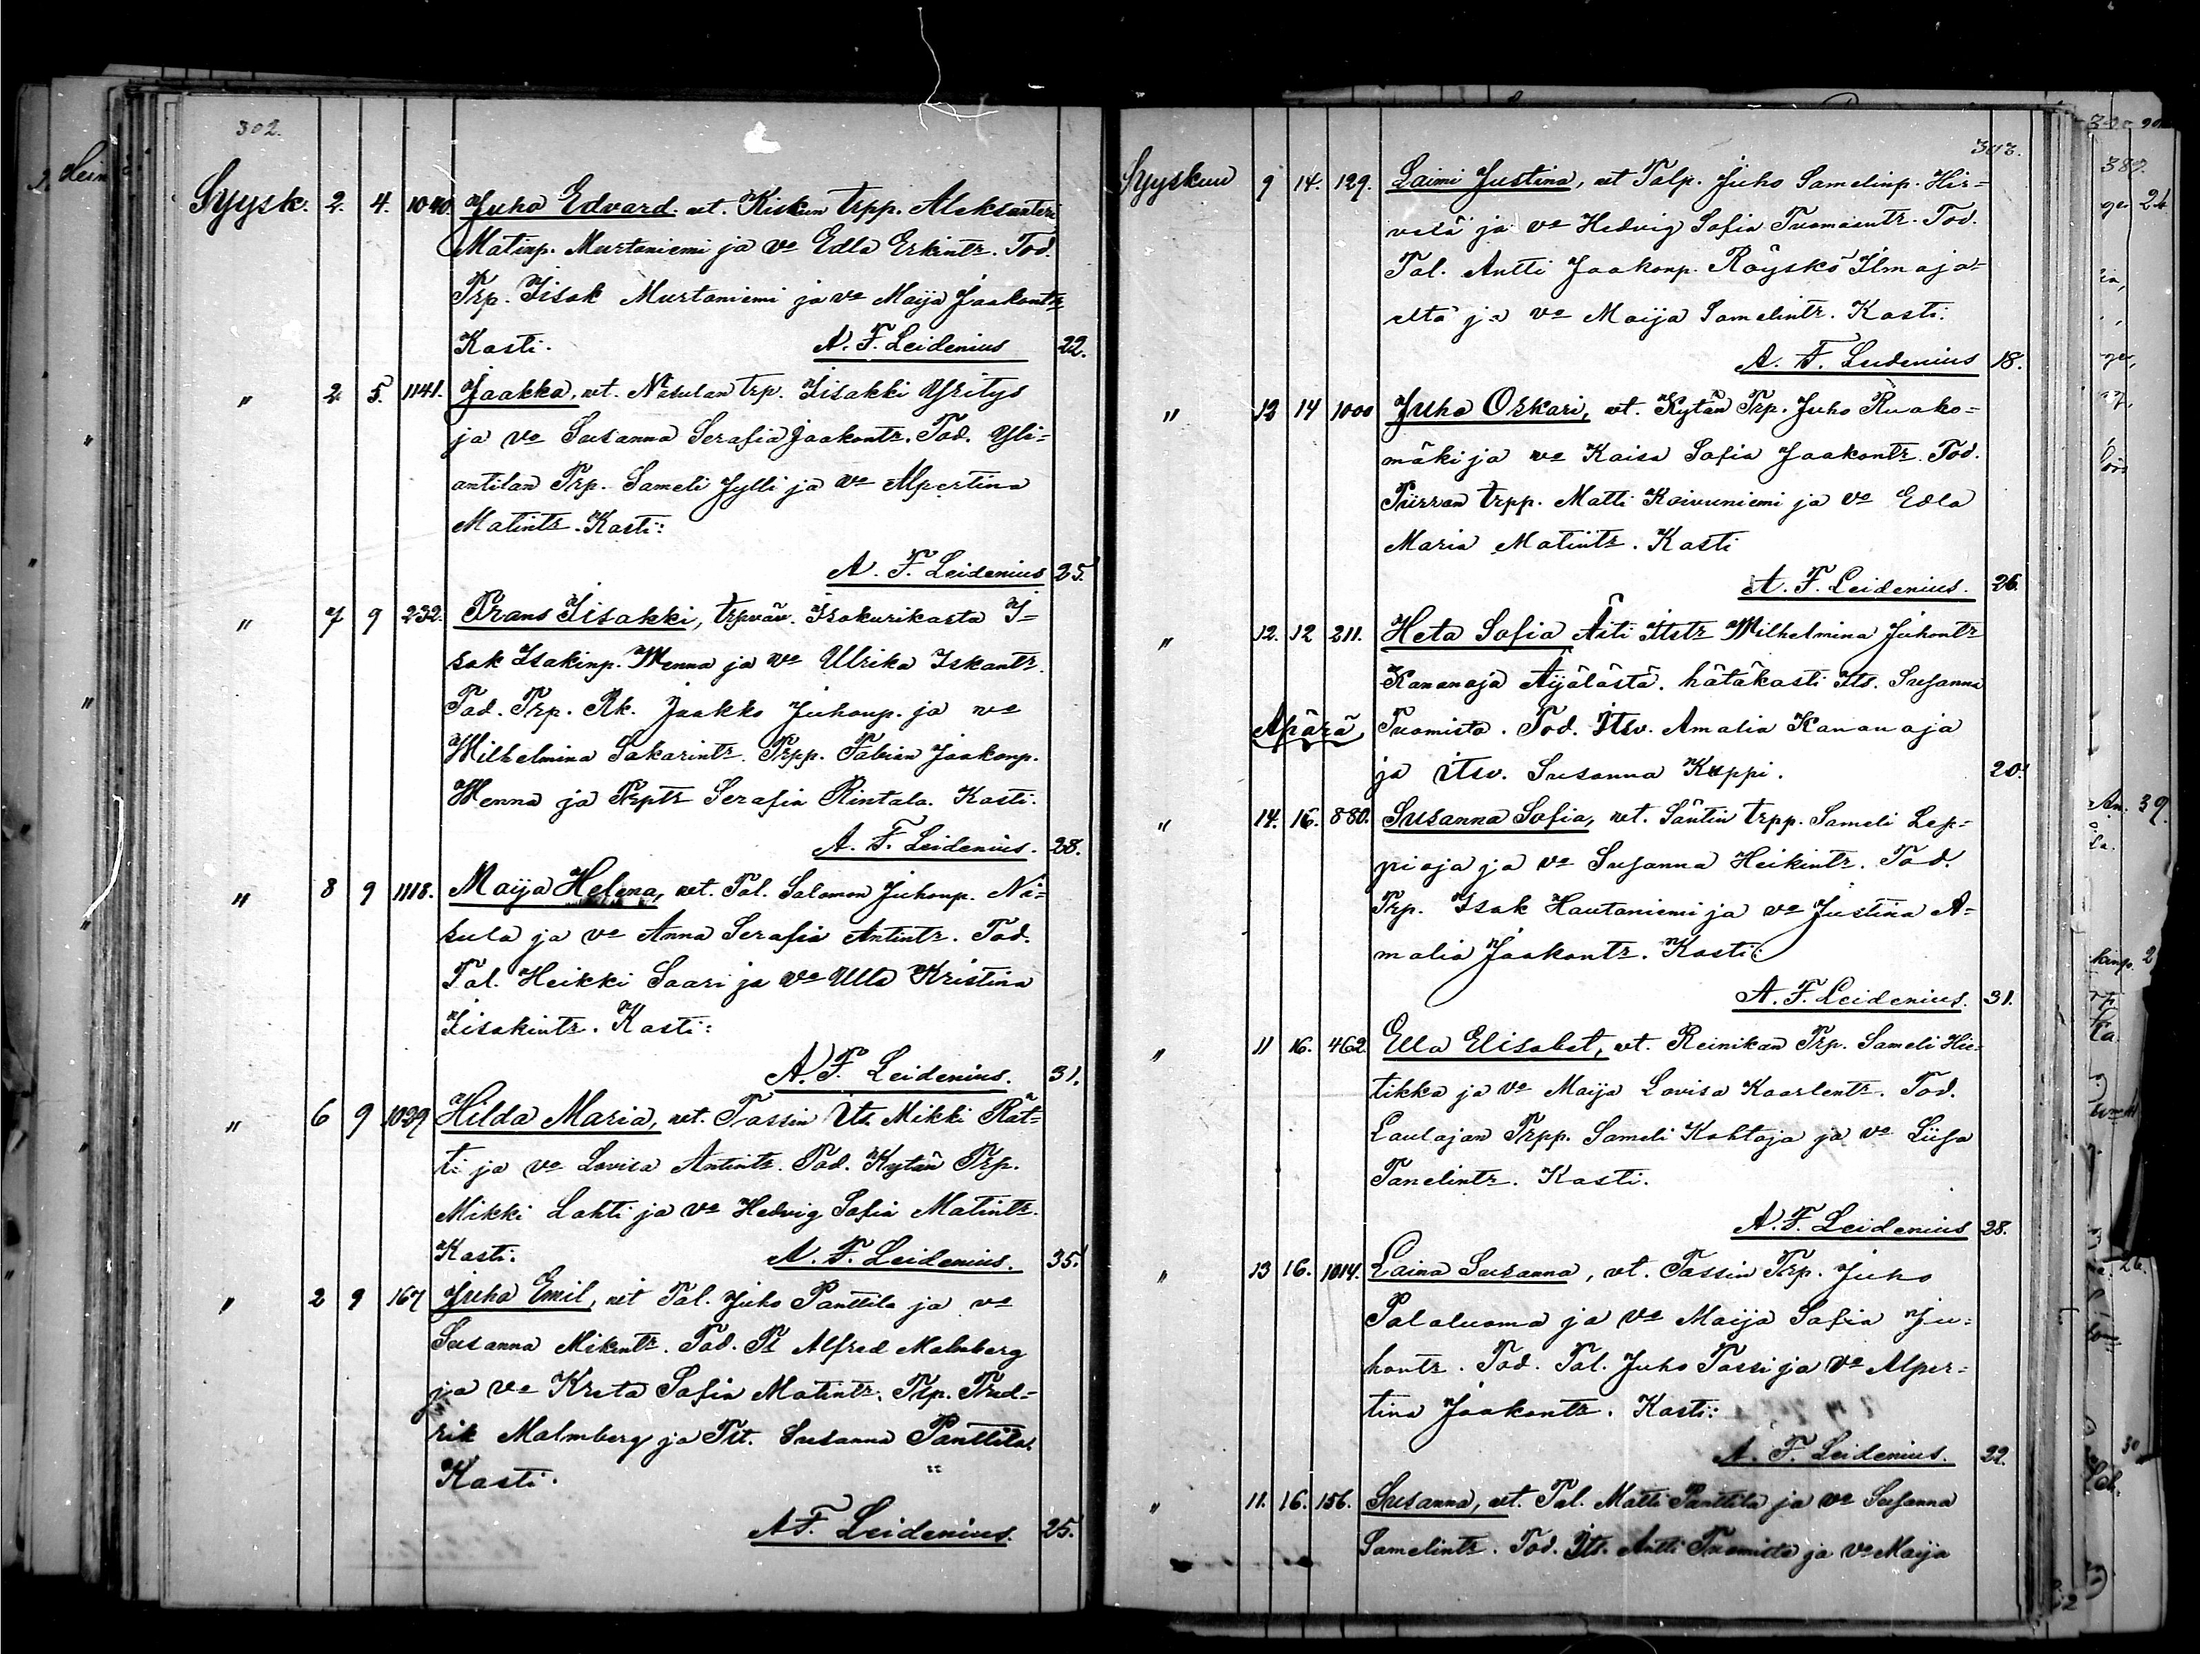 302.
Syysk. 2. 4. 1040. Juho Edvard. vt. Kiskun trpp. Aleksanteri
Matinp. Murtoniemi ja vo Edla Erkintr. Tod.
Trp. Iisak Murtoniemi ja vo Maija Jaakontr
Kasti. A. F. Leidenius 22.
" 2 5. 1141. Jaakko, vt. Näsulan trp. Iisakki Yritys
ja vo Susanna Serafia Jaakontr. Tod. Yli=
antilan Trp. Sameli Jylli ja vo Alpertina
Matintr. Kasti:
A. F. Leidenius 25.
" 7 9 232. Frans Iisakki, trpväv. Isokurikasta I=
sak Isakinp. Wenna ja vo Ulrika Iskantr.
Tod. Trp. Rk. Jaakko Juhonp. ja vo
Wilhelmina Sakarintr. Trpp. Fabian Jaakonp.
Wenna ja Trptr Serafia Rintala. Kasti.
A. F. Leidenius. 28.
" 8 9 1118. Maija Helena, vt. Tal. Salomon Juhonp. Nä=
sula ja vo Anna Serafia Antintr. Tod.
Tal. Heikki Saari ja vo Ulla Kristina
Iisakintr. Kasti:
A. F. Leidenius. 31.
" 6 9 1029 Hilda Maria, vt. Tassin Its. Mikki Rät=
ti ja vo Lovisa Antintr. Tod. Kytän Trp.
Mikki Lahti ja vo Hedvig Sofia Matintr.
Kasti. A. F. Leidenius. 35.
" 2 9 167 Juho Emil, vt Tal. Juho Panttila ja vo
Susanna Mikintr. Tod. Alfred Malmberg
ja vo Kreta Sofia Matintr. Trp. Fred=
rik Malmberg ja Tit. Susanna Panttila.
Kasti.
A F. Leidenius. 25.
303.
Syyskuu 9 14. 129. Laimi Justina, vt Talp. Juho Samelinp. Hir=
velä ja vo Hedvig Sofia Tuomaantr. Tod.
Tal. Antti Jaakonp. Röyskö Ilmajo=
elta ja vo Maija Samelintr. Kasti:
A. F. Leidenius 18.
" 12 14 1000 Juho Oskari, vt. Kytän Trp. Juho Ruoko=
mäki ja vo Kaisa Sofia Jaakontr. Tod.
Piirron trpp. Matti Koivuniemi ja vo Edla
Maria Matiintr. Kasti
A. F. Leidenius. 26.
" 12. 12 211. Heta Sofia Äiti Itstr Wilhelmina Juhontr
Kananoja Äijälästä. hätäkasti Its. Susanna
Äpärä Tuomisto. Tod. Itsv. Amalia Kananoja
ja itsv. Susanna Koppi. 20.
" 14. 16. 880. Susanna Sofia, vt. Säntin trpp. Sameli Lep=
pioja ja vo Susanna Heikintr. Tod.
Trp. Isak Hautaniemi ja vo Justina A=
malia Jaakontr. Kasti:
A. F. Leidenius. 31.
" 11 16. 462 Ella Elisabet, vt. Reinikan Trp. Sameli Hie=
tikka ja vo Maija Lovisa Kaarlentr. Tod.
Laulajan Trpp. Sameli Kohtoja ja vo Liisa
Tanelintr. Kasti.
A. F. Leidenius 28.
" 13 16. 1014. Laina Susanna, vt. Tassin Trp. Juho
Palaluoma ja vo Maija Sofia Ju=
hontr. Tod. Tal. Juho Tassi ja vo Alper=
tina Jaakontr. Kasti:
A. F. Leidenius. 22.
" 11. 16. 156. Susanna, vt. Tal. Matti Panttila ja vo Susanna
Samelintr. Tod. Its. Antti Tuomisto ja vo Maija